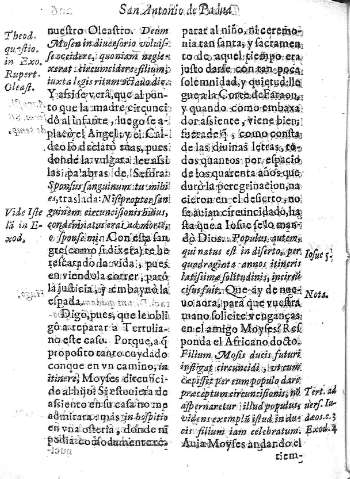 San Antonio de Padua
Theod.
quæstio.
in Exo.
Rupert.
Oleast.
nuestro Oleastro. Deum
Mosen in diuersorio voluis-
se occidere, quoniam neglex-
erat circumcidere filium,
iuxta legis ritum Sciatio die.
Y assi se verá, que al pun-
to que la madre circunci
dò al infante, luego se a-
placò el Angel: y el Cal-
deo lo declarò mas, pues
donde la vulgata lee assi
las palabras de Sefora:
Sponsus sanguinum tu mihi
es, traslada: Nisi propter san-
guinem circuncisionis huius,
condemnatus erat ad mortē,
o sponse mi. Con esta san-
gre (como si dixera) te he
rescatado la vida, pues
en viendola correr, parò
la justicia, y embaynò la
espada.
Vide Iste
lā in E-
xod,
Digo, pues, que le obli-
gò a reparar a Tertulia-
no este caso. Porque, a q̃
proposito tanto cuydado
conque en vn camino, in
itinere, Moyses circunci-
de al hijo? Si estouiera de
assiento en su casa no me
admirara: mas in hospitio
en vna osteria, donde ni
podia comodamente re-
parar al niño, ni ceremo-
nia tan santa, y sacramen
to de aquel tiempo era
justo darse con tan poca
solemnidad, y quietud lle
gue a la Corte de Faraon,
y quando como embaxa
dor assiente, viene bien;
fuera de q̃, como consta
de las diuinas letras, to-
dos quantos por espacio
de los quarenta años que
durò la peregrinacion, na
cieron en el desierto, no
se auian circuncidado, ha
sta que a Iosue se lo man-
dò Dios. Populus autem,
qui natus est in diserto, per
quadraginta annos itineris
latissimæ solitudinis, incircū
cisus fuit. Que ay de nue-
uo aora, para que vuestra
mano solicite venganças
en el amigo Moyses? Res
ponda el Africano docto.
Filium Mosis ducis futuri
instigat circuncidi, vt cum
cœpisset per eum populo dari
præceptum circuncisionis, nō
aspernaretur illud populus,
videns exemplum istud in du-
cis filio iam celebratum.
Auia Moyses andando el
Iosue 5.
Nota.
Tert. ad
uers. Iu
dæos c. 3
Exod. 4
tiem-